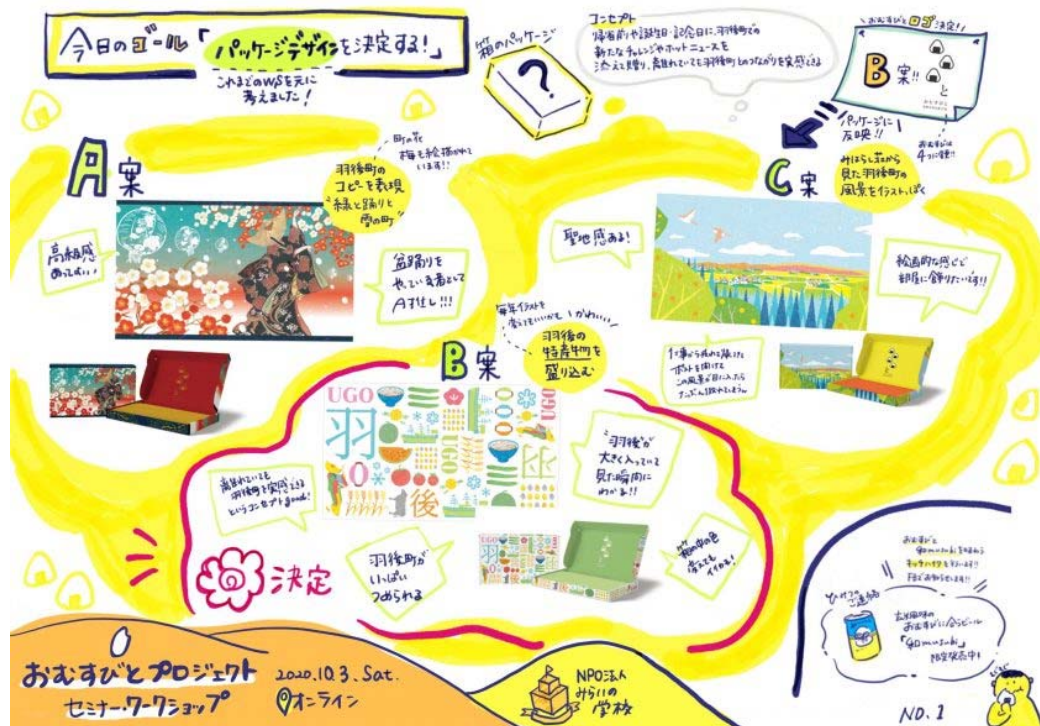 今日のゴール「パッケージデザインを決定する!」
これまでのWSを元に
考えました!
箱のパッケージ
?
コンセプト
帰省前や誕生日・記念日に、羽後町での
新たなチャレンジやホットニュースを
添えて贈り、離れていても羽後町とのつながりを実感できる
おむすびとロゴ決定!
B案!!
と
パッケージに
反映!!
おむすびは
A案
町の花
梅も絵描かれて
います!!
羽後町の
コピーを表現
"緑と踊りと
雪の町"
高級感
あってよい
盆踊りを
やっている者として
A推し!!!
C案
みはらし荘から
見た羽後町の
風景をイラストっぽく
聖地感ある!
絵画的な感じで
部屋に飾りたいです!!
仕事から疲れて帰ってきて
ポストを開けて
この風景が目に入ったら
B案
毎年イラストを
変えてもいいかも
かわいい
羽後の
特産物を
盛り込む
UGO
羽
UGO
UGO
後
"羽後"が
大きく入っていて
見た瞬間に
わかる!!
離れていても
羽後町を実感できる
というコンセプトgood!
羽後町が
いっぱい
つめられる
箱の中の色
変えても
イイかも!
決定
おむすびと
ひみつの
ご連絡
玄米風味の
おむすびに合うビール
限定発売中!
おむすびとプロジェクト
セミナー・ワークショップ
2020.10.3.Sat.
オンライン
NPO法人
みらいの
学校
NO.1